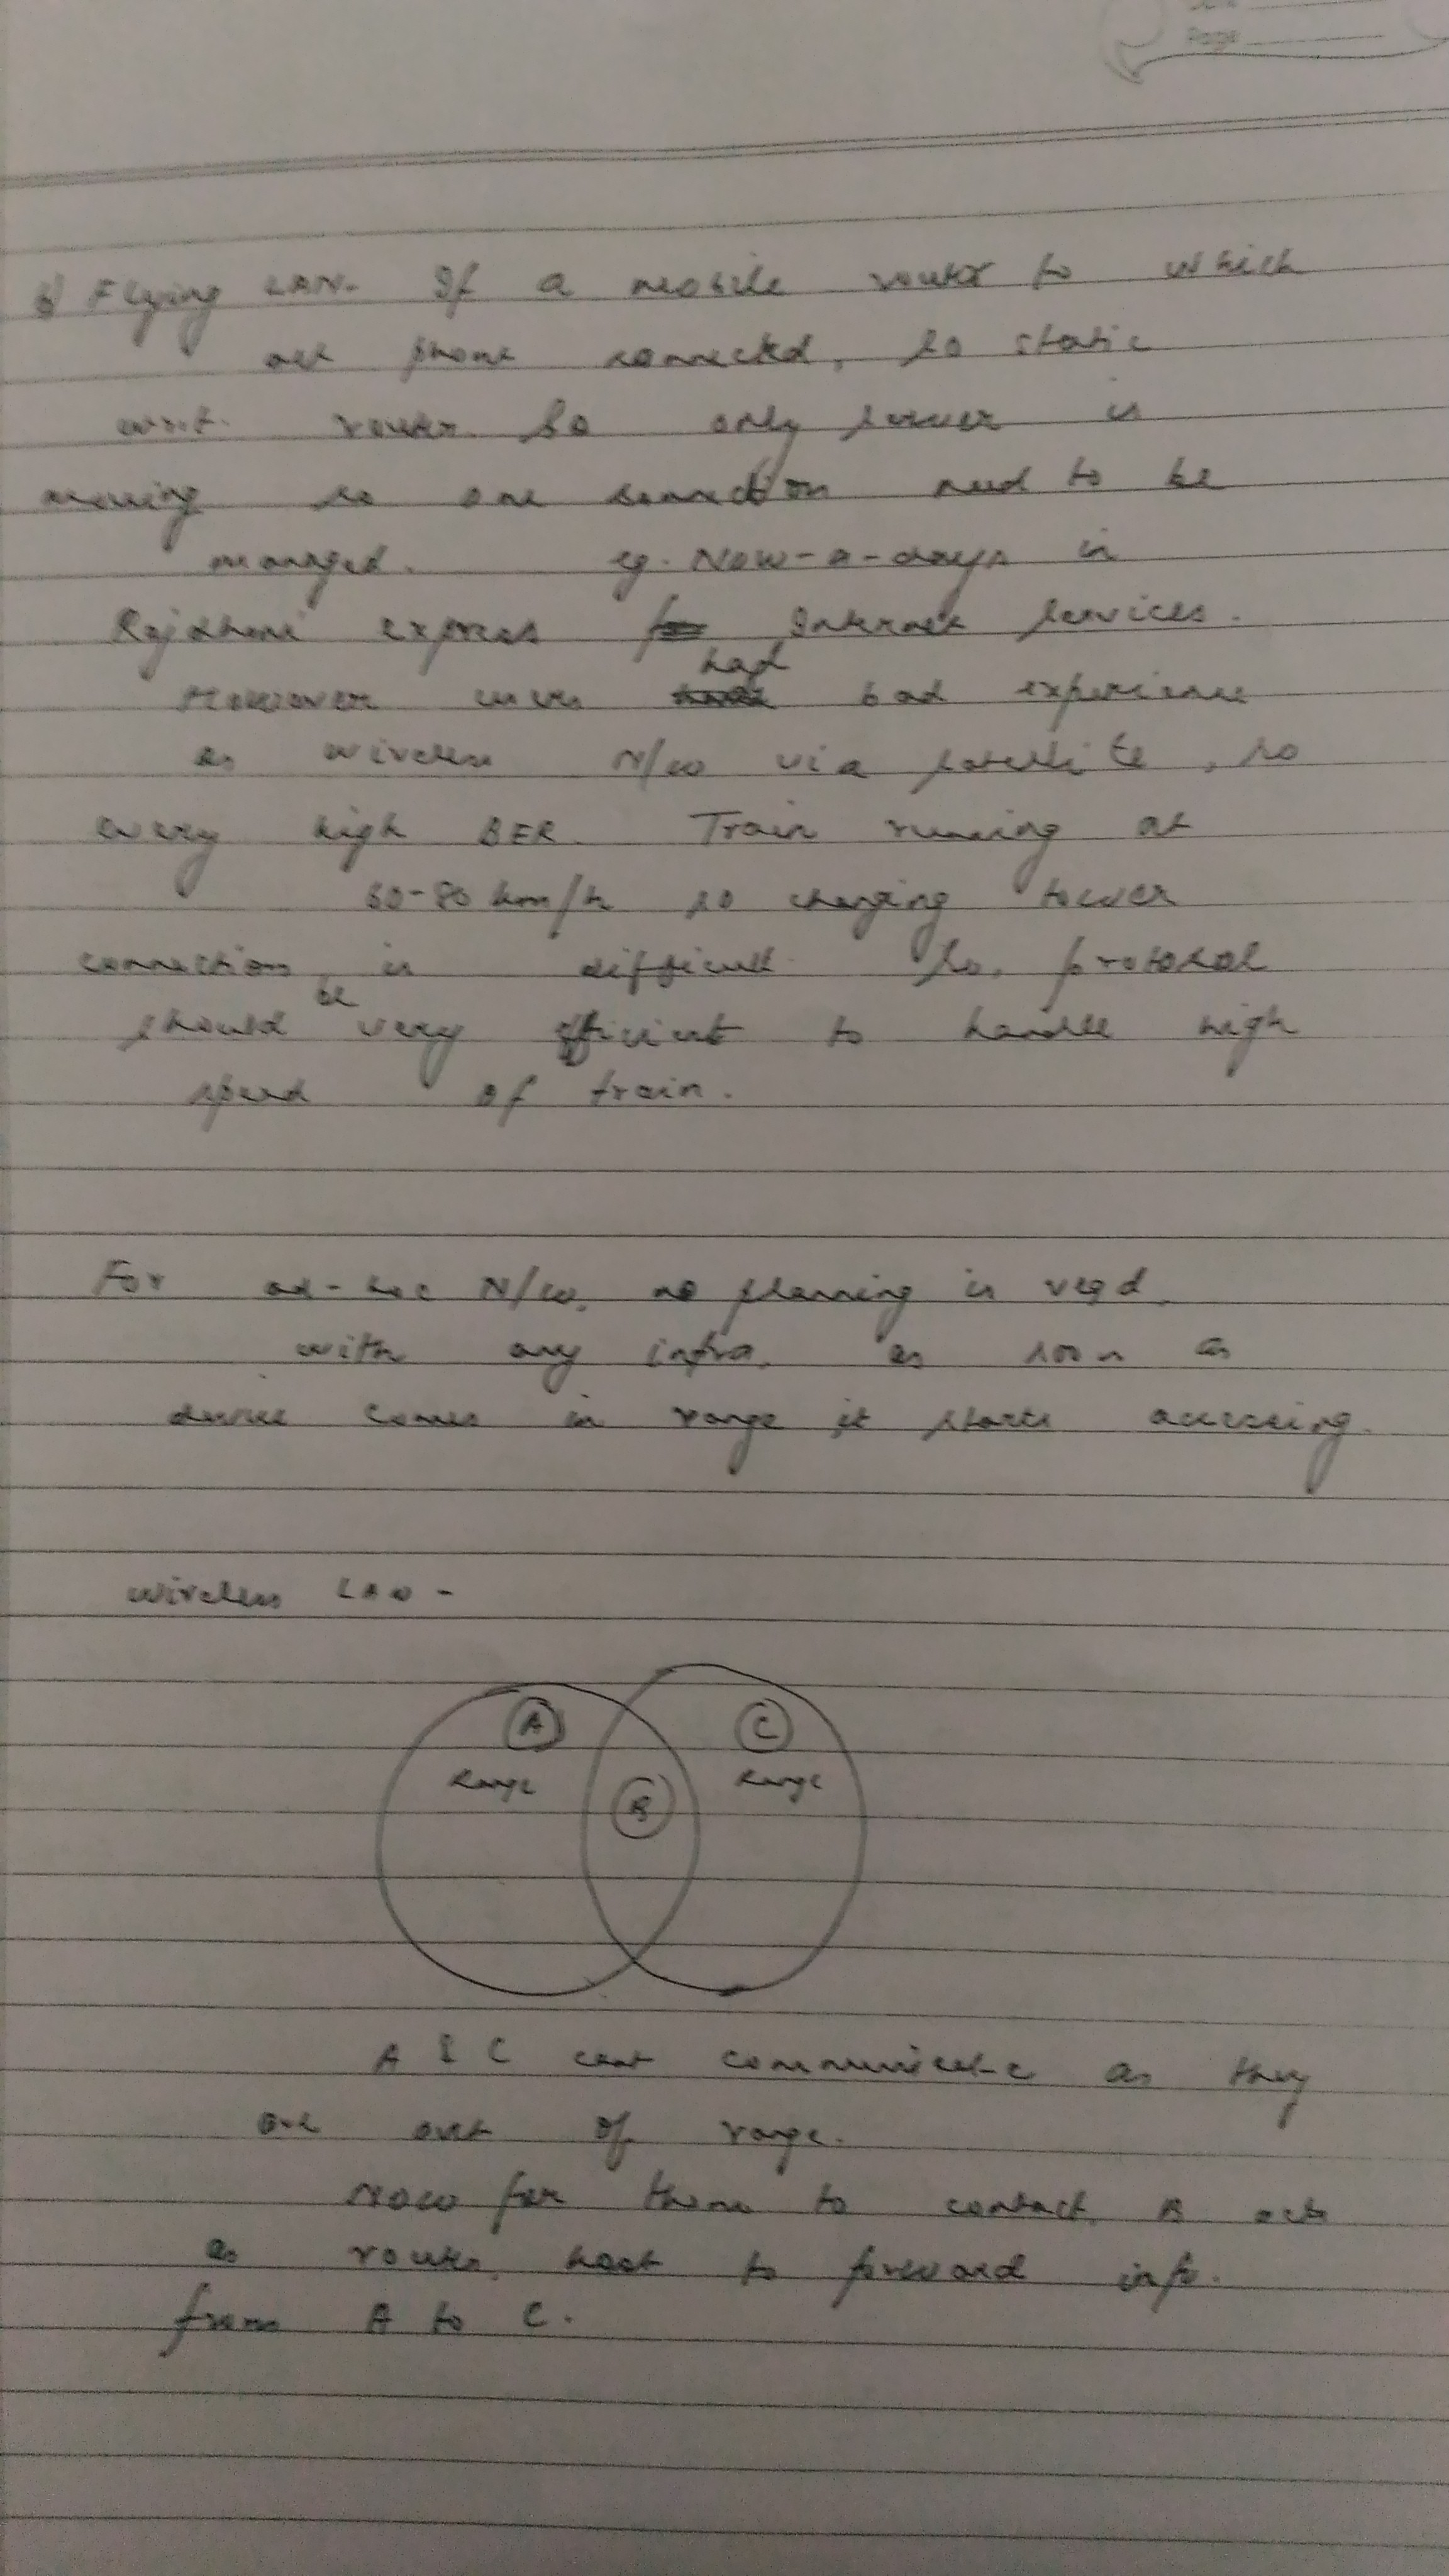 Page
Flying LAN- If a mobile router to which
all phone connected, so static
w.r.t. router. So only server is
moving so one connection need to be
managed. eg. Now-a-days in
Rajdhani express Internet services.
However users had bad experience
as wireless N/w via satellite, so
very high BER. Train running at
60-80 km/h so changing tower
connection is difficult. So, protocol
should be very efficient to handle high
speed of train.
For ad-hoc N/w, no planning is reqd
with any infra, as soon as
device comes in range it starts accessing.
Wireless LAN -
A C
Range Range
B
A & C cant communicate as they
are out of range.
Now for them to contact, B acts
as router, host to forward info.
from A to C.